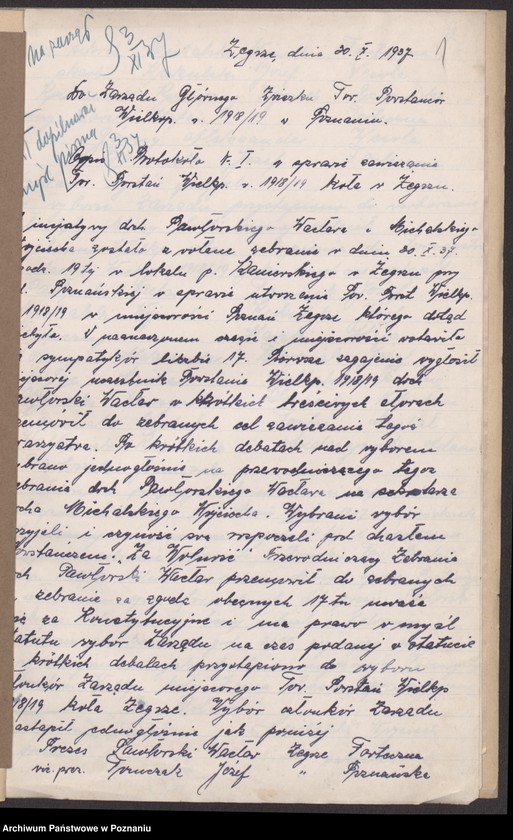 na zarząd
3/XI 37
1
Żegrze, dnia 30. X. 1937
Do Zarządu Głównego Związku Tow. Powstańców
Wielkp. r. 1918/19 w Poznaniu.
dopilnować
pisma
3/XI 37
Protokołu N. I. w sprawie zawiązania
Tow. Powstań Wielkp. r. 1918/19 Koła w Żegrzu.
inicjatywy drh. Pawłowskiego Wacława i Michalskiego
Wojciecha zostało zwołane zebranie w dniu 30. X. 37.
godz. 19tej w lokalu p. Kamierskiego w Żegrzu przy
ul. Poznańskiej w sprawie utworzenia Tow. Powst. Wielkp.
1918/19 w miejscowości Poznań Żegrze którego dotąd
niebyło. W naznaczonym czasie i miejscowości
sympatyków liczbie 17. Pierwsze zagajenie wygłosił
miejscowy uczestnik Powstania Wielkp. 1918/19 drh
Pawłowski Wacław w krótkich treściwych słowach
przemówił do zebranych cel zawiązania tegoż
Towarzystwa. Po krótkich debatach nad wyborem
wybrano jednogłośnie na przewodniczącego tegoż
zebrania drh Pawłowskiego Wacława na sekretarza
drha Michalskiego Wojciecha. Wybrani wybór
przyjeli i czynność swą rozpoczeli pod hasłem
Powstańczem: Za Wolność Przewodniczący Zebrania
drh Pawłowski Wacław przemówił do zebranych
zebranie za zgodą obecnych 17tu uważa
się za Konstytucyjne i ma prawo w myśl
statutu wybór Zarządu na czas podanej w statucie
krótkich debatach przystąpiono do wyboru
członków Zarządu miejscowego Tow. Powstań Wielkp
1918/19 Koła Żegrze. Wybór członków Zarządu
nastąpił jednogłośnie jak poniżej
Prezes Pawłowski Wacław Żegrze Forteczna
vic. prez. Tomczak Józef " Poznańska
Archiwum Państwowe w Poznaniu